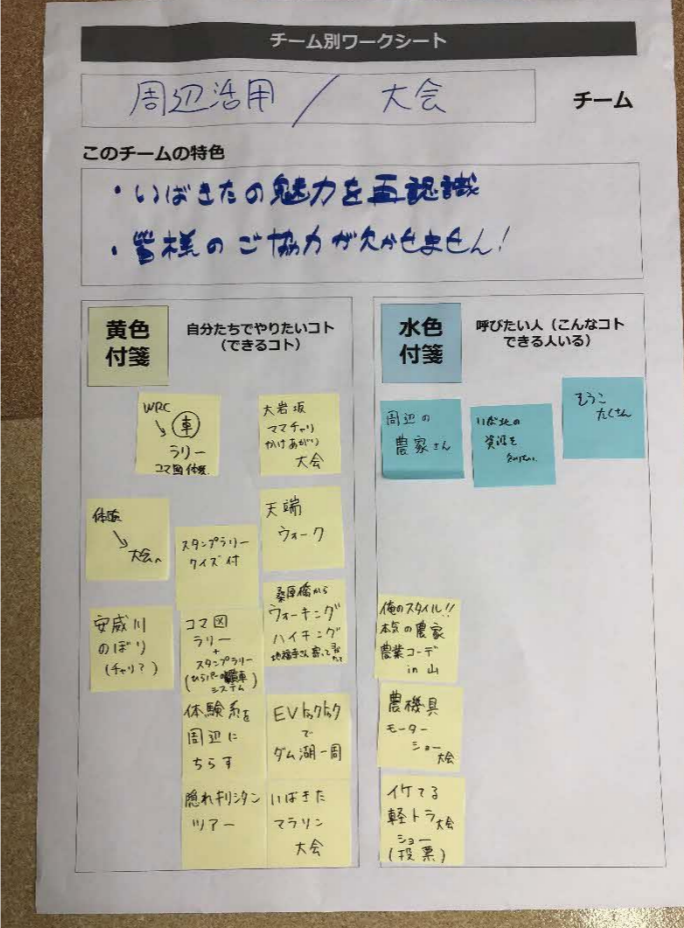 チーム別ワークシート
周辺活用 / 大会
チーム
このチームの特色
・いばきたの魅力を再認識
・皆様のご協力が欠かせません!
黄色
付箋
自分たちでやりたいコト
(できるコト)
WRC
車
ラリー
コマ図体験
大岩坂
ママチャリ
かけあがり
大会
体験
大会へ
スタンプラリー
クイズ付
天端
ウォーク
安威川
のぼり
(チャリ?)
コマ図
ラリー
+
スタンプラリー
システム)
桑原橋から
ウォーキング
ハイキング
体験系を
周辺に
ちらす
EVトゥクトゥク
で
ダム湖一周
隠れキリシタン
ツアー
いばきた
マラソン
大会
水色
付箋
呼びたい人(こんなコト
できる人いる)
周辺の
農家さん
いば北の
資源を
たくさん
俺のスタイル!!
本気の農家
農業コーデ
in 山
農機具
モーター
ショー
大会
イケてる
軽トラ大会
ショー
(投票)